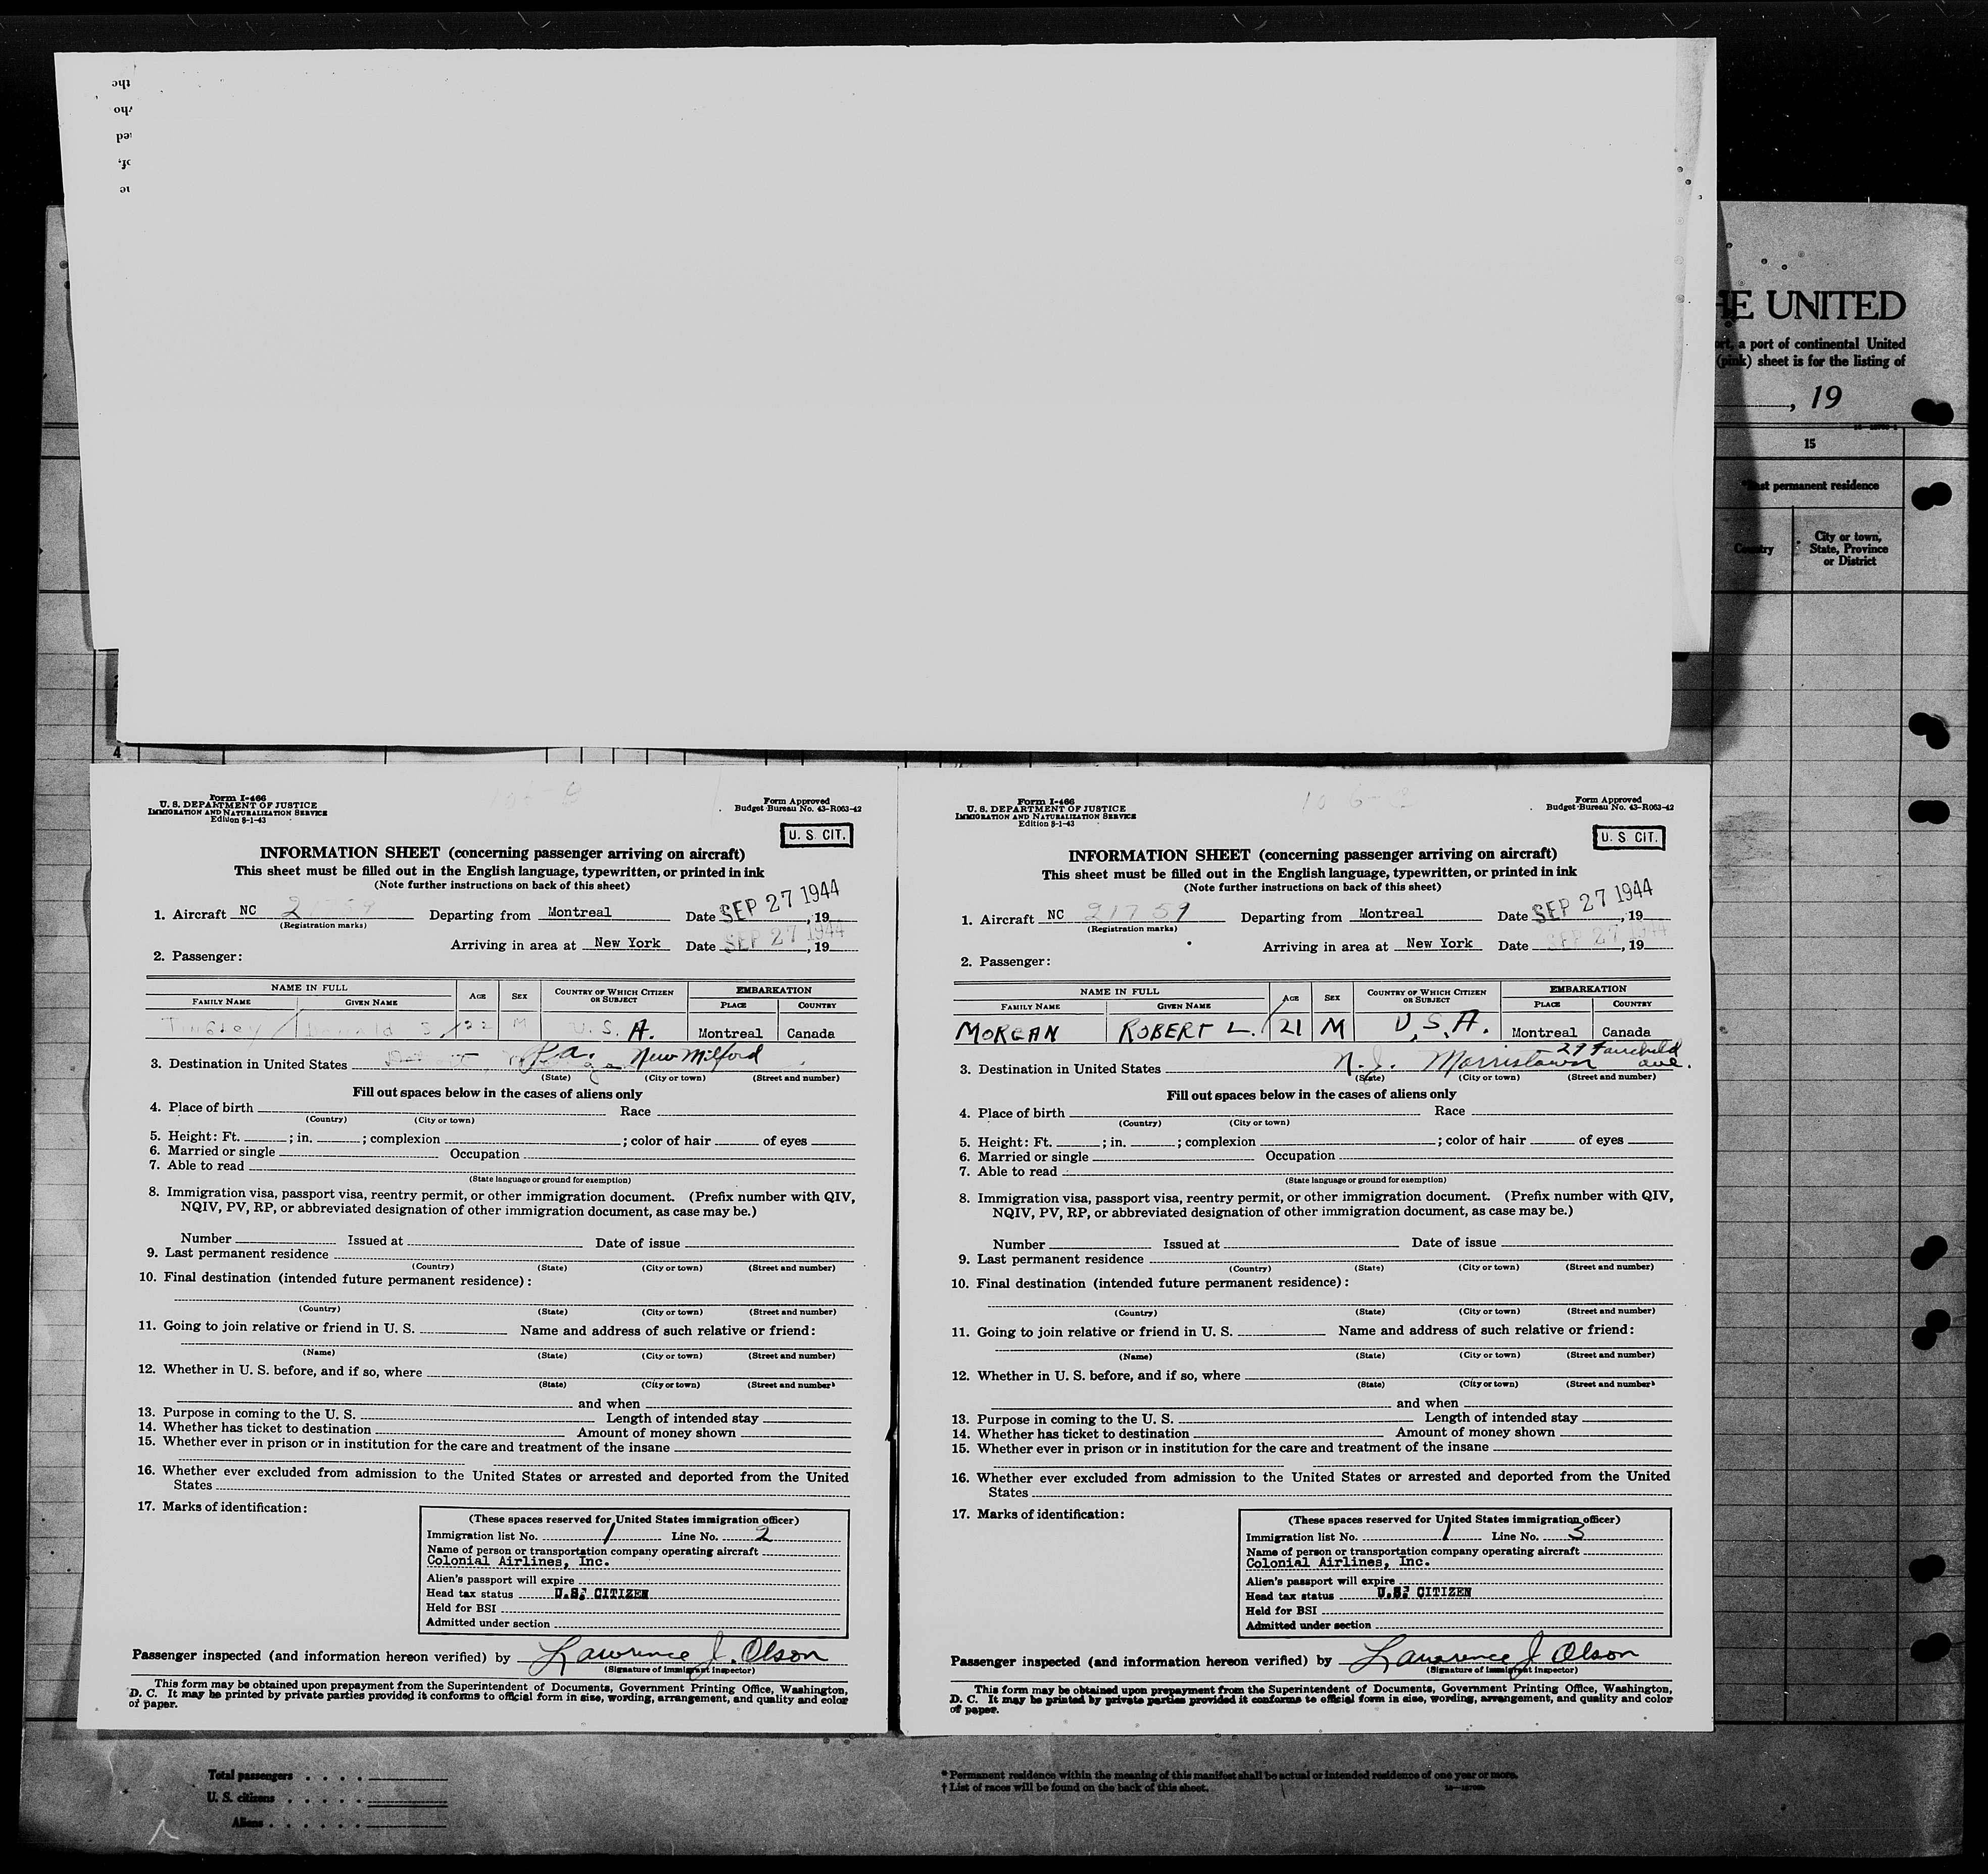 HE UNITED
a port of continental United
(pink) sheet is for the listing of
, 19
15
permanent residence
Country
City or town,
State, Province
or District
4
Form I-466
U. S. DEPARTMENT OF JUSTICE
IMMIGRATION AND NATURALIZATION SERVICE
Edition 8-1-43
Form Approved
Budget Bureau No. 43-R063-42
U. S. CIT.
INFORMATION SHEET (concerning passenger arriving on aircraft)
This sheet must be filled out in the English language, typewritten, or printed in ink
(Note further instructions on back of this sheet)
1. Aircraft NC 21759 Departing from Montreal Date SEP 27 1944, 19
(Registration marks)
Arriving in area at New York Date SEP 27 1944, 19
2. Passenger:
NAME IN FULL AGE SEX COUNTRY OF WHICH CITIZEN OR SUBJECT EMBARKATION
FAMILY NAME GIVEN NAME PLACE COUNTRY
Tingley Donald J 22 M U. S. A. Montreal Canada
3. Destination in United States Pa. New Milford
(State) (City or town) (Street and number)
Fill out spaces below in the cases of aliens only
4. Place of birth Race
(Country) (City or town)
5. Height: Ft. ; in. ; complexion ; color of hair of eyes
6. Married or single Occupation
7. Able to read
(State language or ground for exemption)
8. Immigration visa, passport visa, reentry permit, or other immigration document. (Prefix number with QIV,
NQIV, PV, RP, or abbreviated designation of other immigration document, as case may be.)
Number Issued at Date of issue
9. Last permanent residence
(Country) (State) (City or town) (Street and number)
10. Final destination (intended future permanent residence):
(Country) (State) (City or town) (Street and number)
11. Going to join relative or friend in U. S. Name and address of such relative or friend:
(Name) (State) (City or town) (Street and number)
12. Whether in U. S. before, and if so, where
(State) (City or town) (Street and number)
and when
13. Purpose in coming to the U. S. Length of intended stay
14. Whether has ticket to destination Amount of money shown
15. Whether ever in prison or in institution for the care and treatment of the insane
16. Whether ever excluded from admission to the United States or arrested and deported from the United
States
17. Marks of identification:
(These spaces reserved for United States immigration officer)
Immigration list No. 1 Line No. 2
Name of person or transportation company operating aircraft
Colonial Airlines, Inc.
Alien's passport will expire
Head tax status U.S. CITIZEN
Held for BSI
Admitted under section
Passenger inspected (and information hereon verified) by Lawrence J. Olson
(Signature of immigrant inspector)
This form may be obtained upon prepayment from the Superintendent of Documents, Government Printing Office, Washington,
D. C. It may be printed by private parties provided it conforms to official form in size, wording, arrangement, and quality and color
of paper.
Form I-466
U. S. DEPARTMENT OF JUSTICE
IMMIGRATION AND NATURALIZATION SERVICE
Edition 8-1-43
10 6-2
Form Approved
Budget Bureau No. 43-R063-42
U. S. CIT.
INFORMATION SHEET (concerning passenger arriving on aircraft)
This sheet must be filled out in the English language, typewritten, or printed in ink
(Note further instructions on back of this sheet)
1. Aircraft NC 21759 Departing from Montreal Date SEP 27 1944, 19
(Registration marks)
Arriving in area at New York Date SEP 27 1944, 19
2. Passenger:
NAME IN FULL AGE SEX COUNTRY OF WHICH CITIZEN OR SUBJECT EMBARKATION
FAMILY NAME GIVEN NAME PLACE COUNTRY
MORGAN ROBERT L. 21 M U.S.A. Montreal Canada
3. Destination in United States N.J. Morristown 29 Fairchild ave.
(State) (City or town) (Street and number)
Fill out spaces below in the cases of aliens only
4. Place of birth Race
(Country) (City or town)
5. Height: Ft. ; in. ; complexion ; color of hair of eyes
6. Married or single Occupation
7. Able to read
(State language or ground for exemption)
8. Immigration visa, passport visa, reentry permit, or other immigration document. (Prefix number with QIV,
NQIV, PV, RP, or abbreviated designation of other immigration document, as case may be.)
Number Issued at Date of issue
9. Last permanent residence
(Country) (State) (City or town) (Street and number)
10. Final destination (intended future permanent residence):
(Country) (State) (City or town) (Street and number)
11. Going to join relative or friend in U. S. Name and address of such relative or friend:
(Name) (State) (City or town) (Street and number)
12. Whether in U. S. before, and if so, where
(State) (City or town) (Street and number)
and when
13. Purpose in coming to the U. S. Length of intended stay
14. Whether has ticket to destination Amount of money shown
15. Whether ever in prison or in institution for the care and treatment of the insane
16. Whether ever excluded from admission to the United States or arrested and deported from the United
States
17. Marks of identification:
(These spaces reserved for United States immigration officer)
Immigration list No. 1 Line No. 3
Name of person or transportation company operating aircraft
Colonial Airlines, Inc.
Alien's passport will expire
Head tax status U.S. CITIZEN
Held for BSI
Admitted under section
Passenger inspected (and information hereon verified) by Lawrence J Olson
(Signature of immigrant inspector)
This form may be obtained upon prepayment from the Superintendent of Documents, Government Printing Office, Washington,
D. C. It may be printed by private parties provided it conforms to official form in size, wording, arrangement, and quality and color
of paper.
Total passengers
U. S. citizens
Aliens
* Permanent residence within the meaning of this manifest shall be actual or intended residence of one year or more.
† List of races will be found on the back of this sheet.